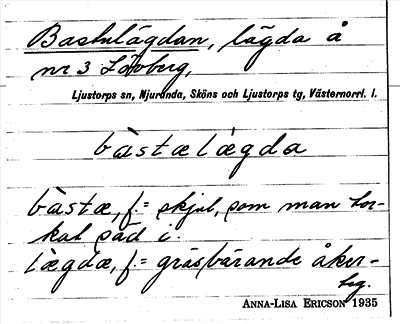 Bastulägdan, lägda å
nr 3 Lövberg,
Ljustorps sn, Njurunda, Sköns och Ljustorps tg, Västernorrl. l.
bàstælægda
bàstæ, f. = skjul, som man tor-
kat säd i.
lægdæ, f. = gräsbärande åker-
teg.
ANNA-LISA ERICSON 1935